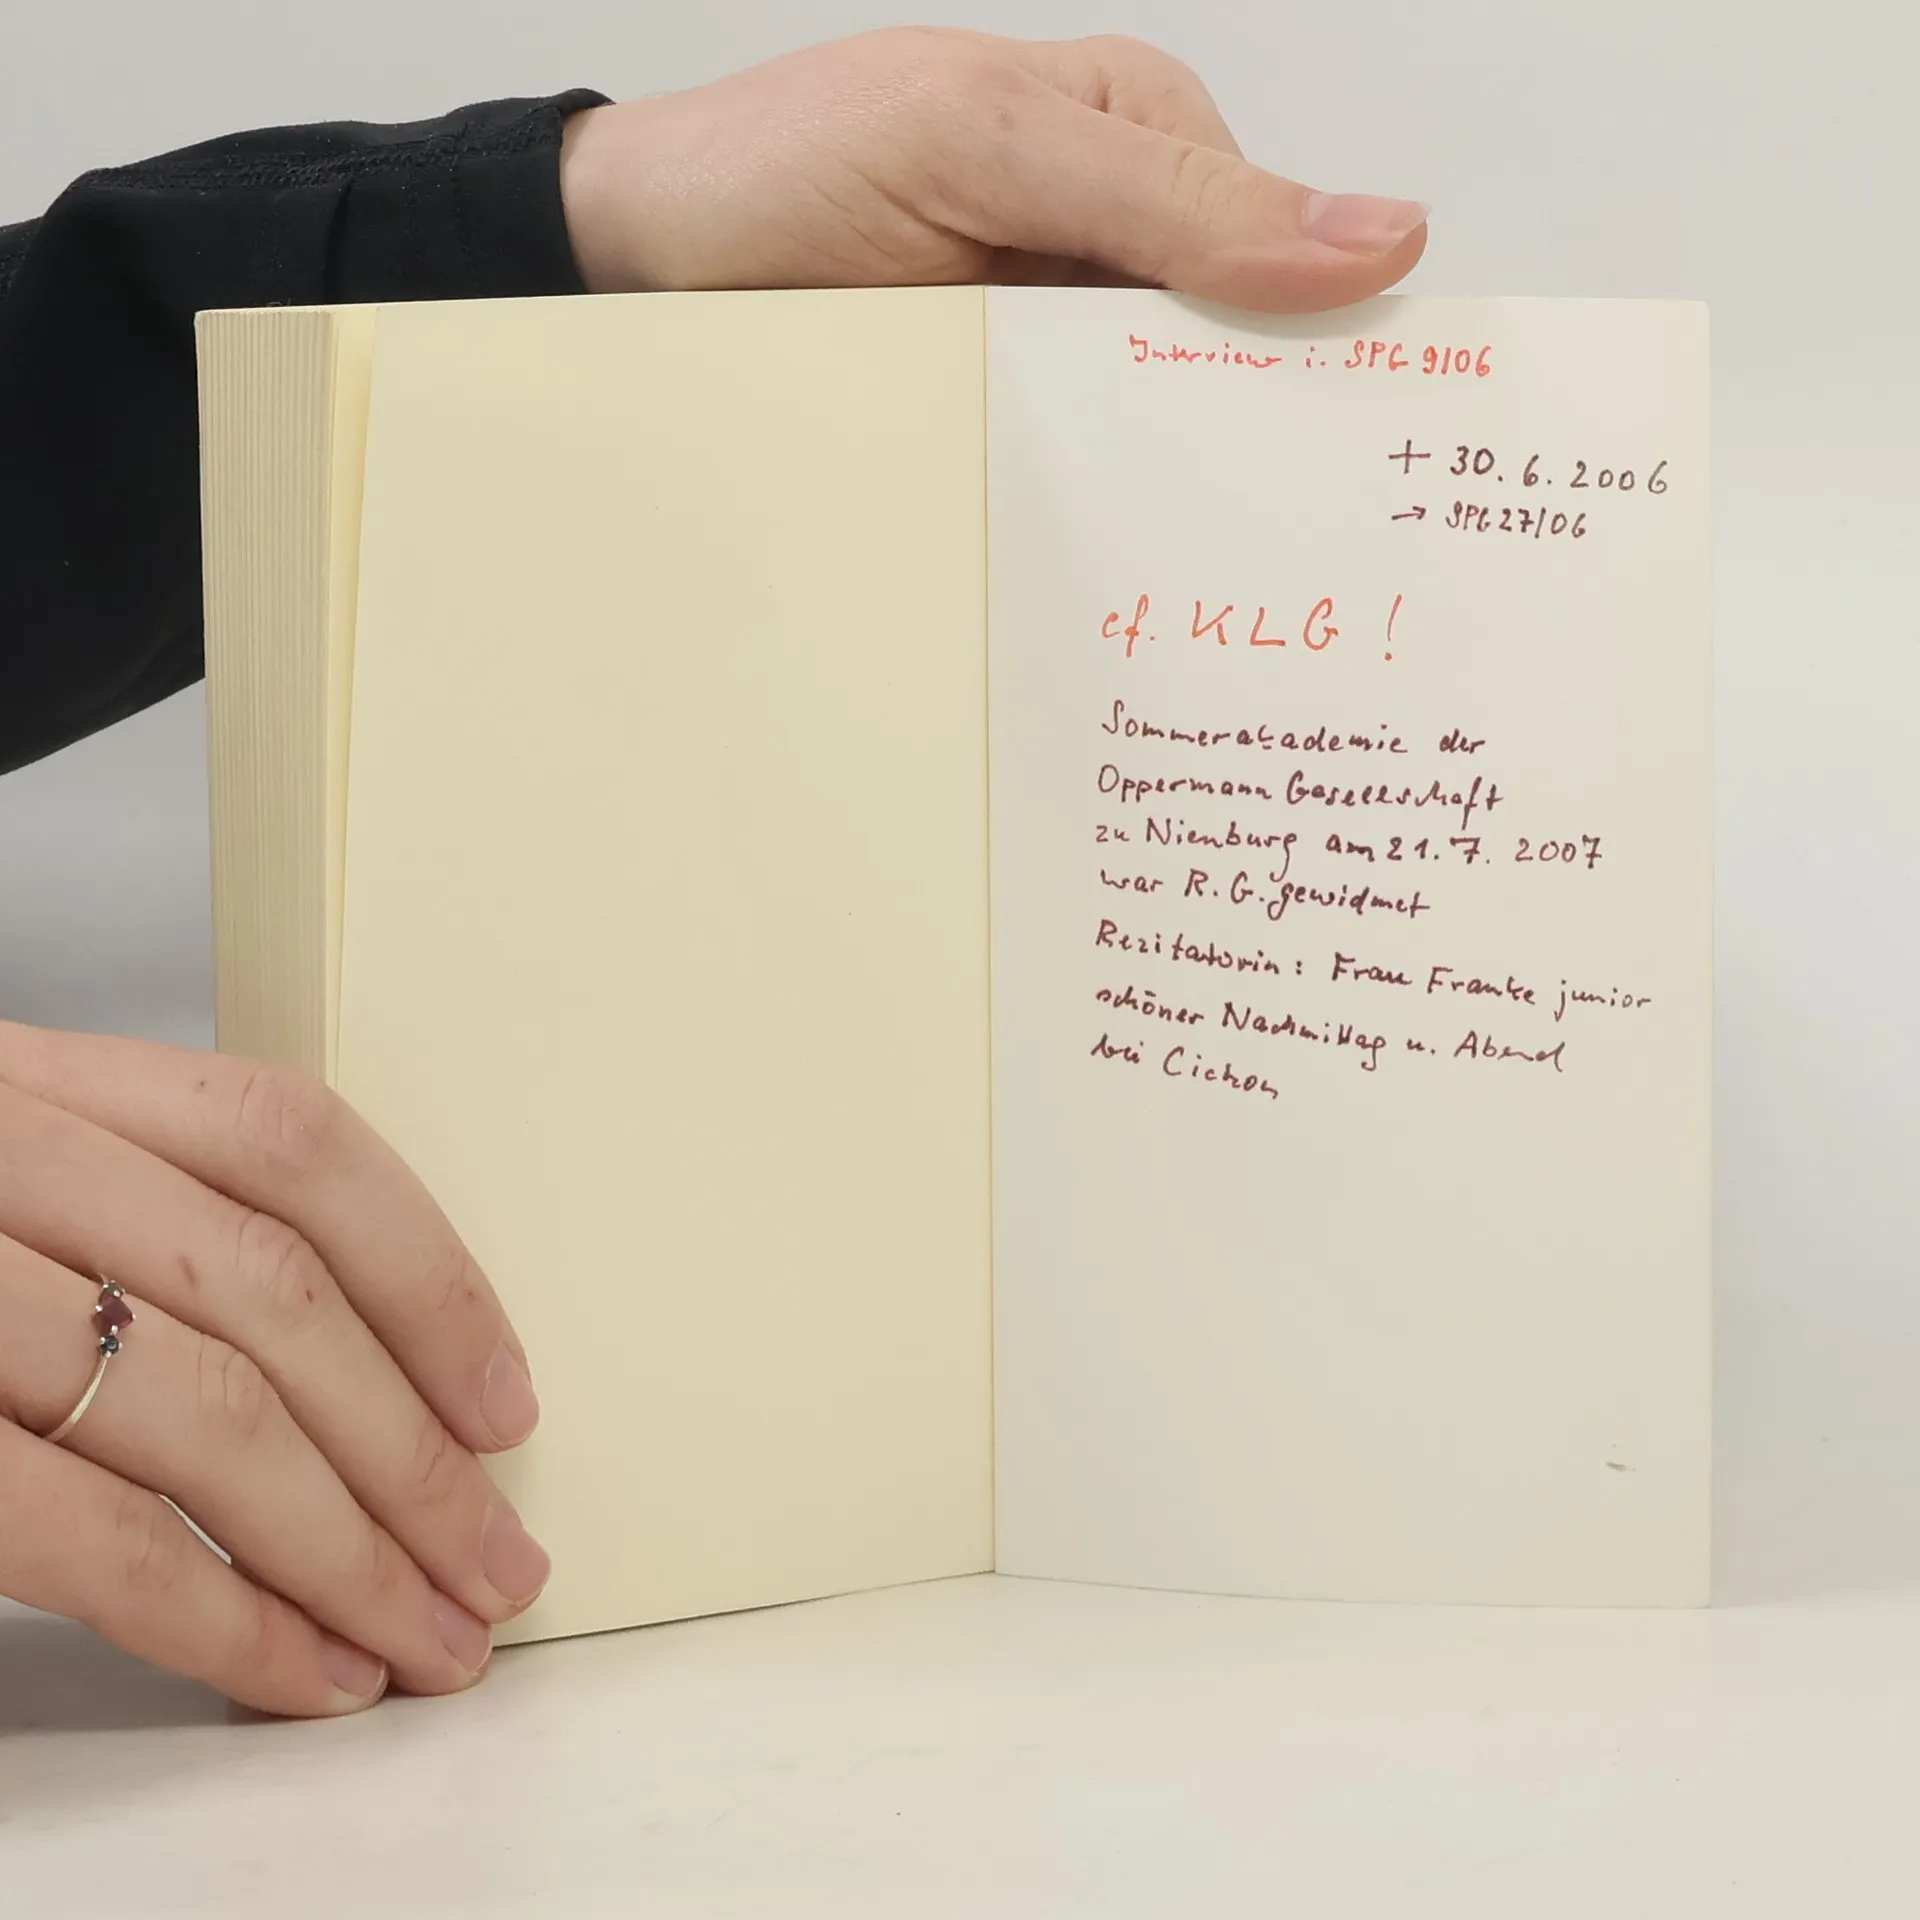 Interview i. SPG 9/06
+ 30.6.2006
→ SPG 27/06
cf. KLG!
Sommerakademie der
Oppermann Gesellschaft
zu Nienburg am 21.7.2007
war R.G. gewidmet
Rezitatorin: Frau Franke junior
schöner Nachmittag u. Abend
bei Cichon